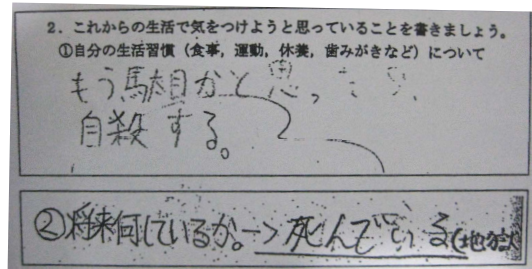 2. これからの生活で気をつけようと思っていることを書きましょう。
①自分の生活習慣（食事，運動，休養，歯みがきなど）について
もう駄目かと思ったら、
自殺する。
②将来何しているか。→死んでいる(地獄